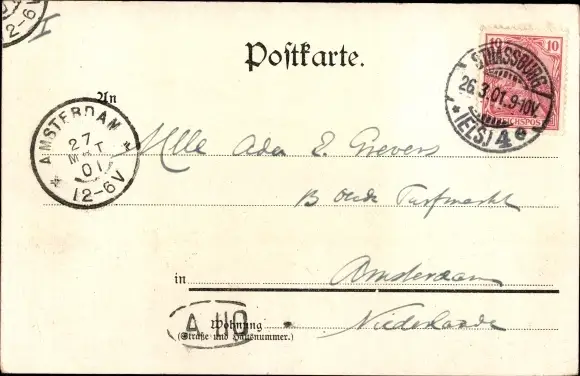 12-6V
I
Postkarte.
10 10
REICHSPOST
STRASSBURG
26.3.01.9-10V.
* (ELS) 4e *
An
AMSTERDAM
27
MRT
01
12-6V
Mlle Ada E. Grevers
B Oude Turfmarkt
in Amsterdam
A 110
Wohnung Niederlande
(Straße und Hausnummer.)